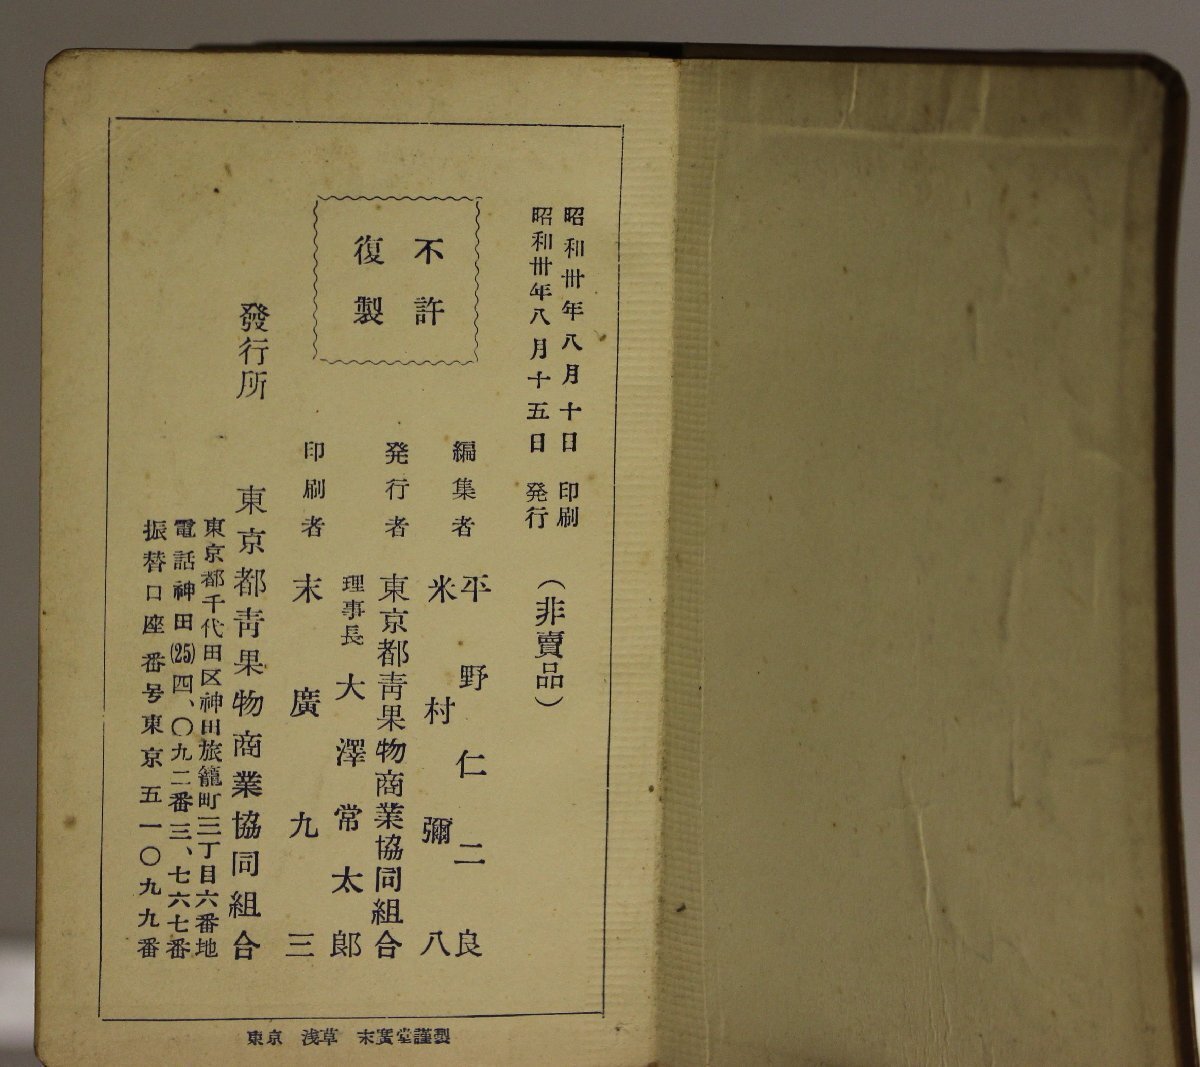 昭和卅年八月十日 印刷
昭和卅年八月十五日 発行
(非賣品)
不許
復製
編集者 平野仁二良
米村彌八
発行者 東京都靑果物商業協同組合
理事長 大澤常太郎
印刷者 末廣九三
發行所 東京都靑果物商業協同組合
東京都千代田区神田旅籠町三丁目六番地
電話神田(25)四、〇九二番三、七六七番
振替口座番号東京五一〇九九番
東京 浅草 末廣堂謹製